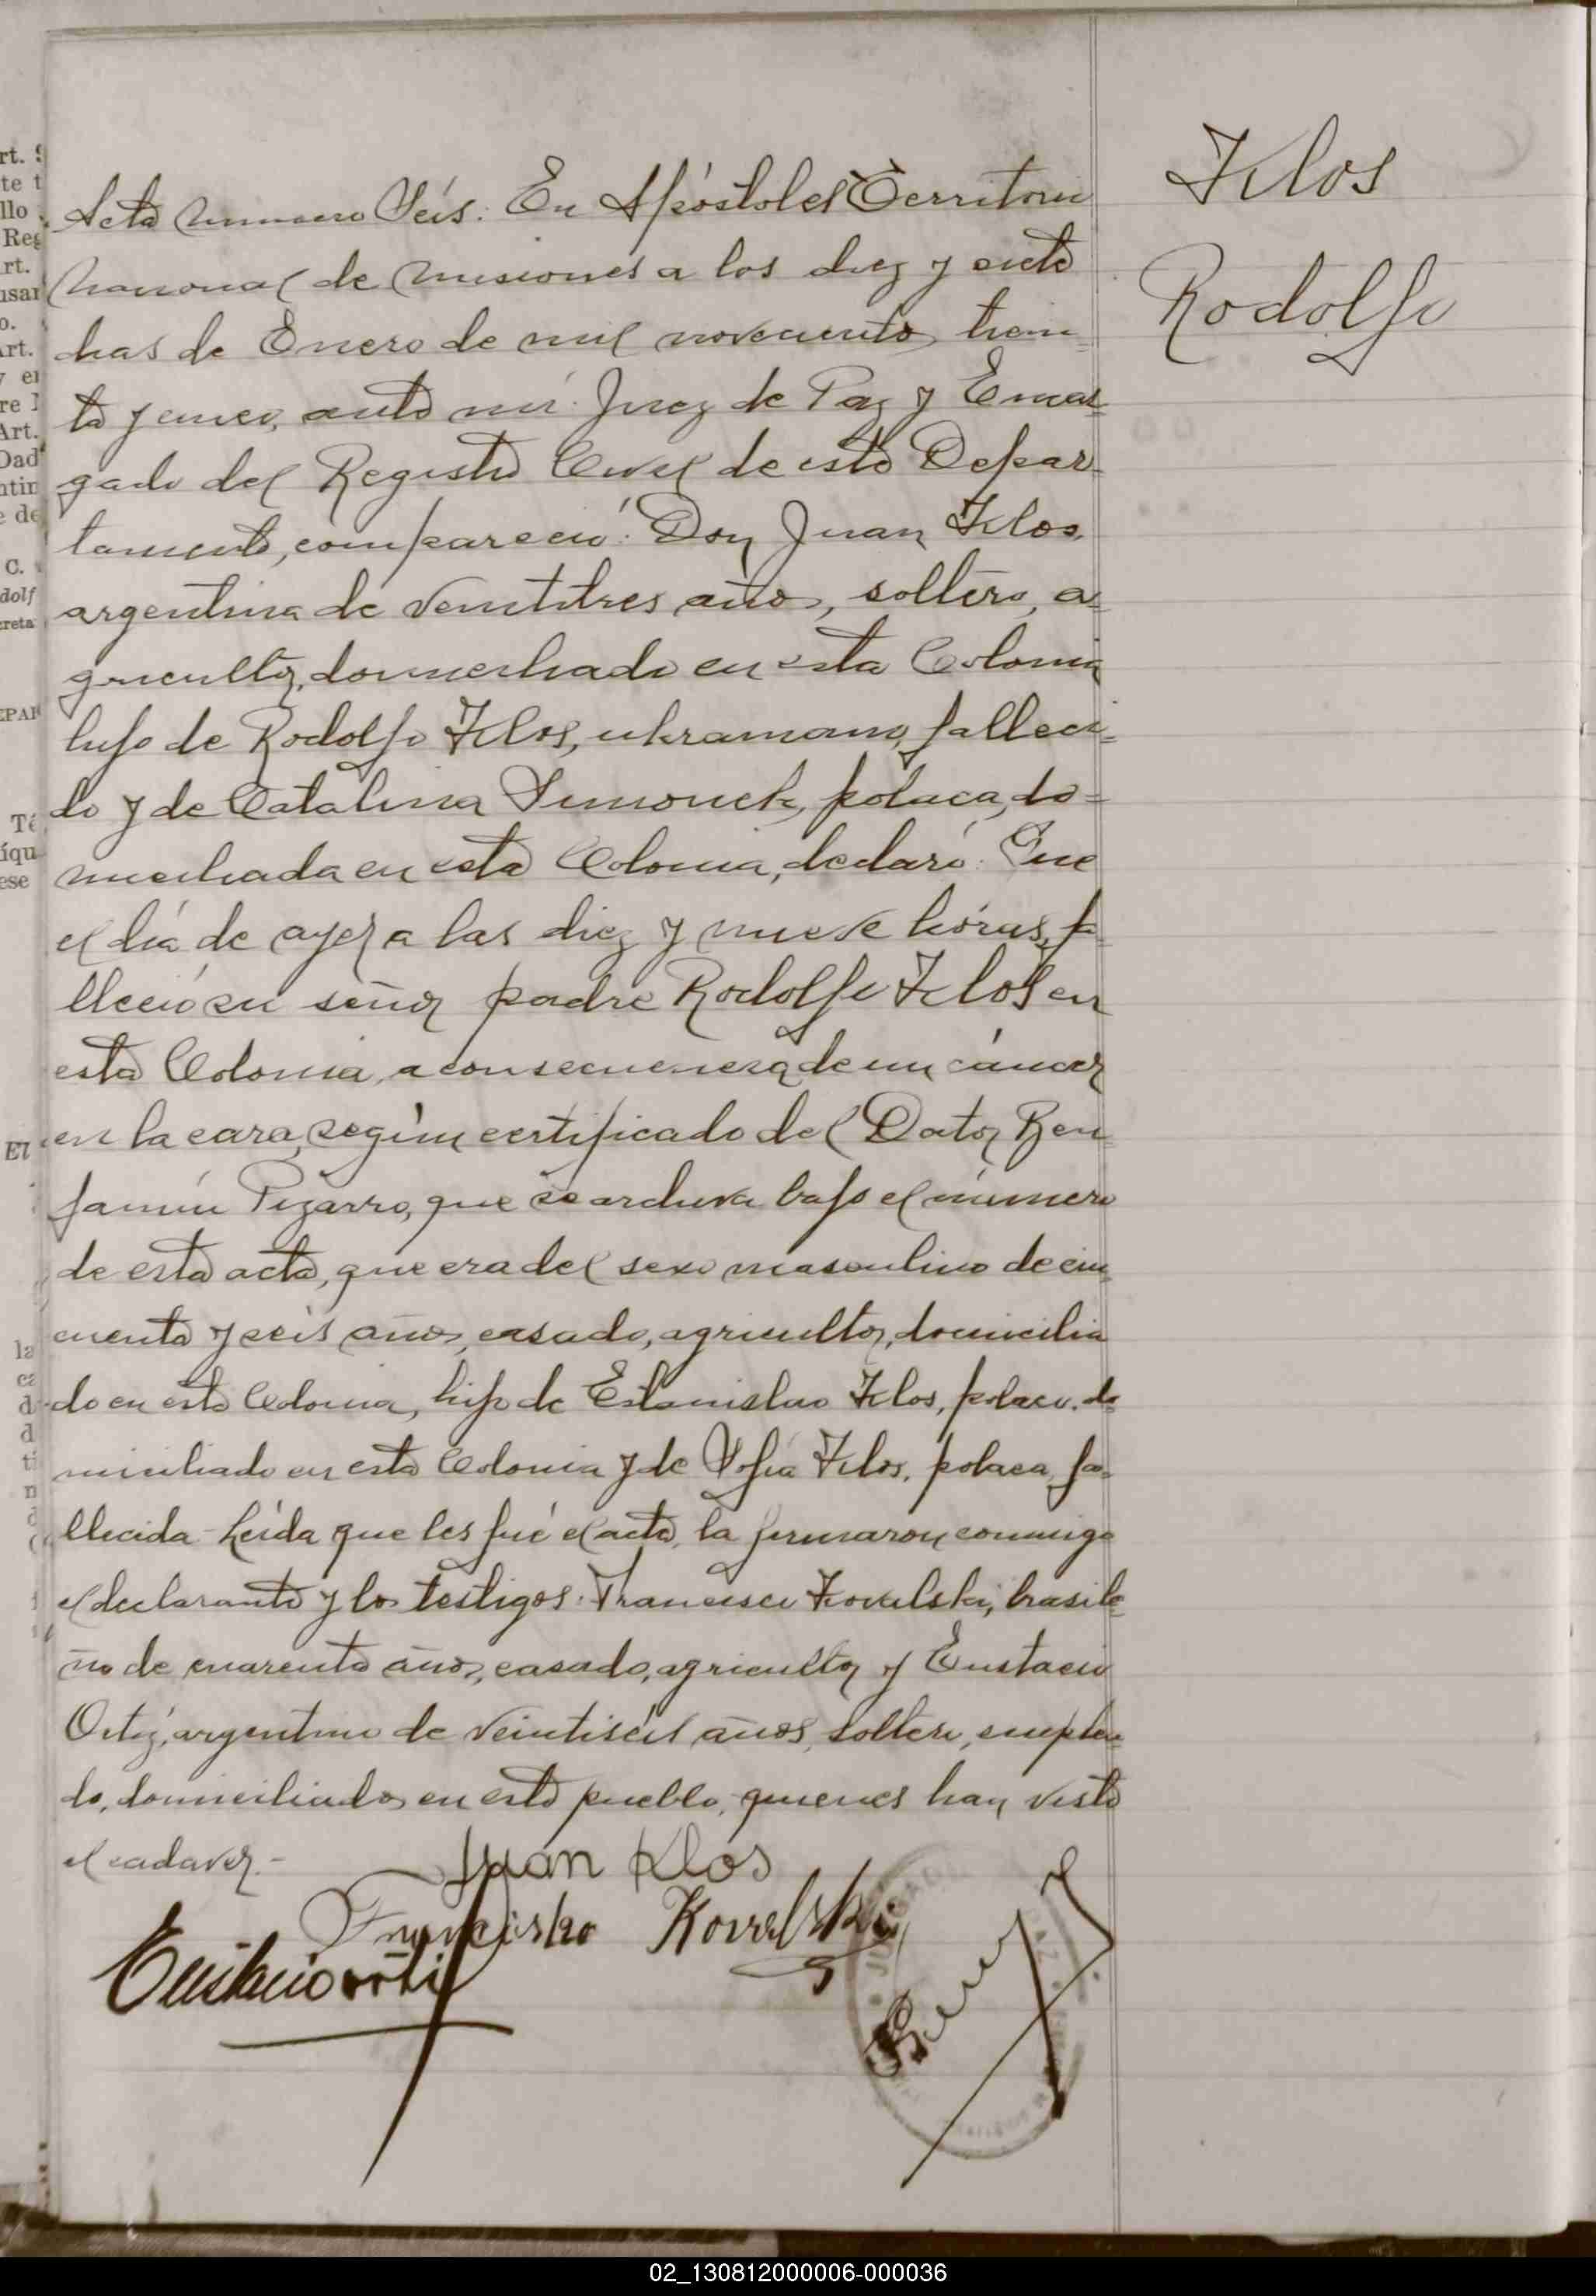 Klos
Rodolfo
Acta número Seis: En Apóstoles Territorio
Nacional de Misiones a los diez y siete
días de Enero de mil novecientos trein-
ta y cinco, ante mí: Juez de Paz y Encar-
gado del Registro Civil de este Depar-
tamento, compareció: Don Juan Klos,
argentino de veintitres años, soltero, a-
gricultor, domiciliado en esta Colonia
hijo de Rodolfo Klos, ukraniano, falleci-
do y de Catalina Simonek, polaca, do-
miciliada en esta Colonia, declaró: Que
el día de ayer a las diez y nueve hóras, fa-
lleció su señor padre Rodolfo Klos en
esta Colonia, a consecuencia de un cáncer
en la cara, según certificado del Dotor Ben
jamín Pizarro, que se archiva bajo el número
de esta acta, que era del sexo masculino de cin-
cuenta y seis años, casado, agricultor, domicilia
do en esta Colonia, hijo de Estanislao Klos, polaco, do-
miciliado en esta Colonia y de Sofía Klos, polaca, fa-
llecida - Leída que les fué el acta, la firmaron conmigo
el declarante y los testigos: Francisco Kovalski, brasile-
ño de cuarenta años, casado, agricultor y Eustacio
Ortiz, argentino de veintiséis años, soltero, emplea-
do, domiciliados en este pueblo, quienes han visto
el cadaver.-
Juan Klos
Francisko Kowalski
Eustacio Orti
02_130812000006-000036